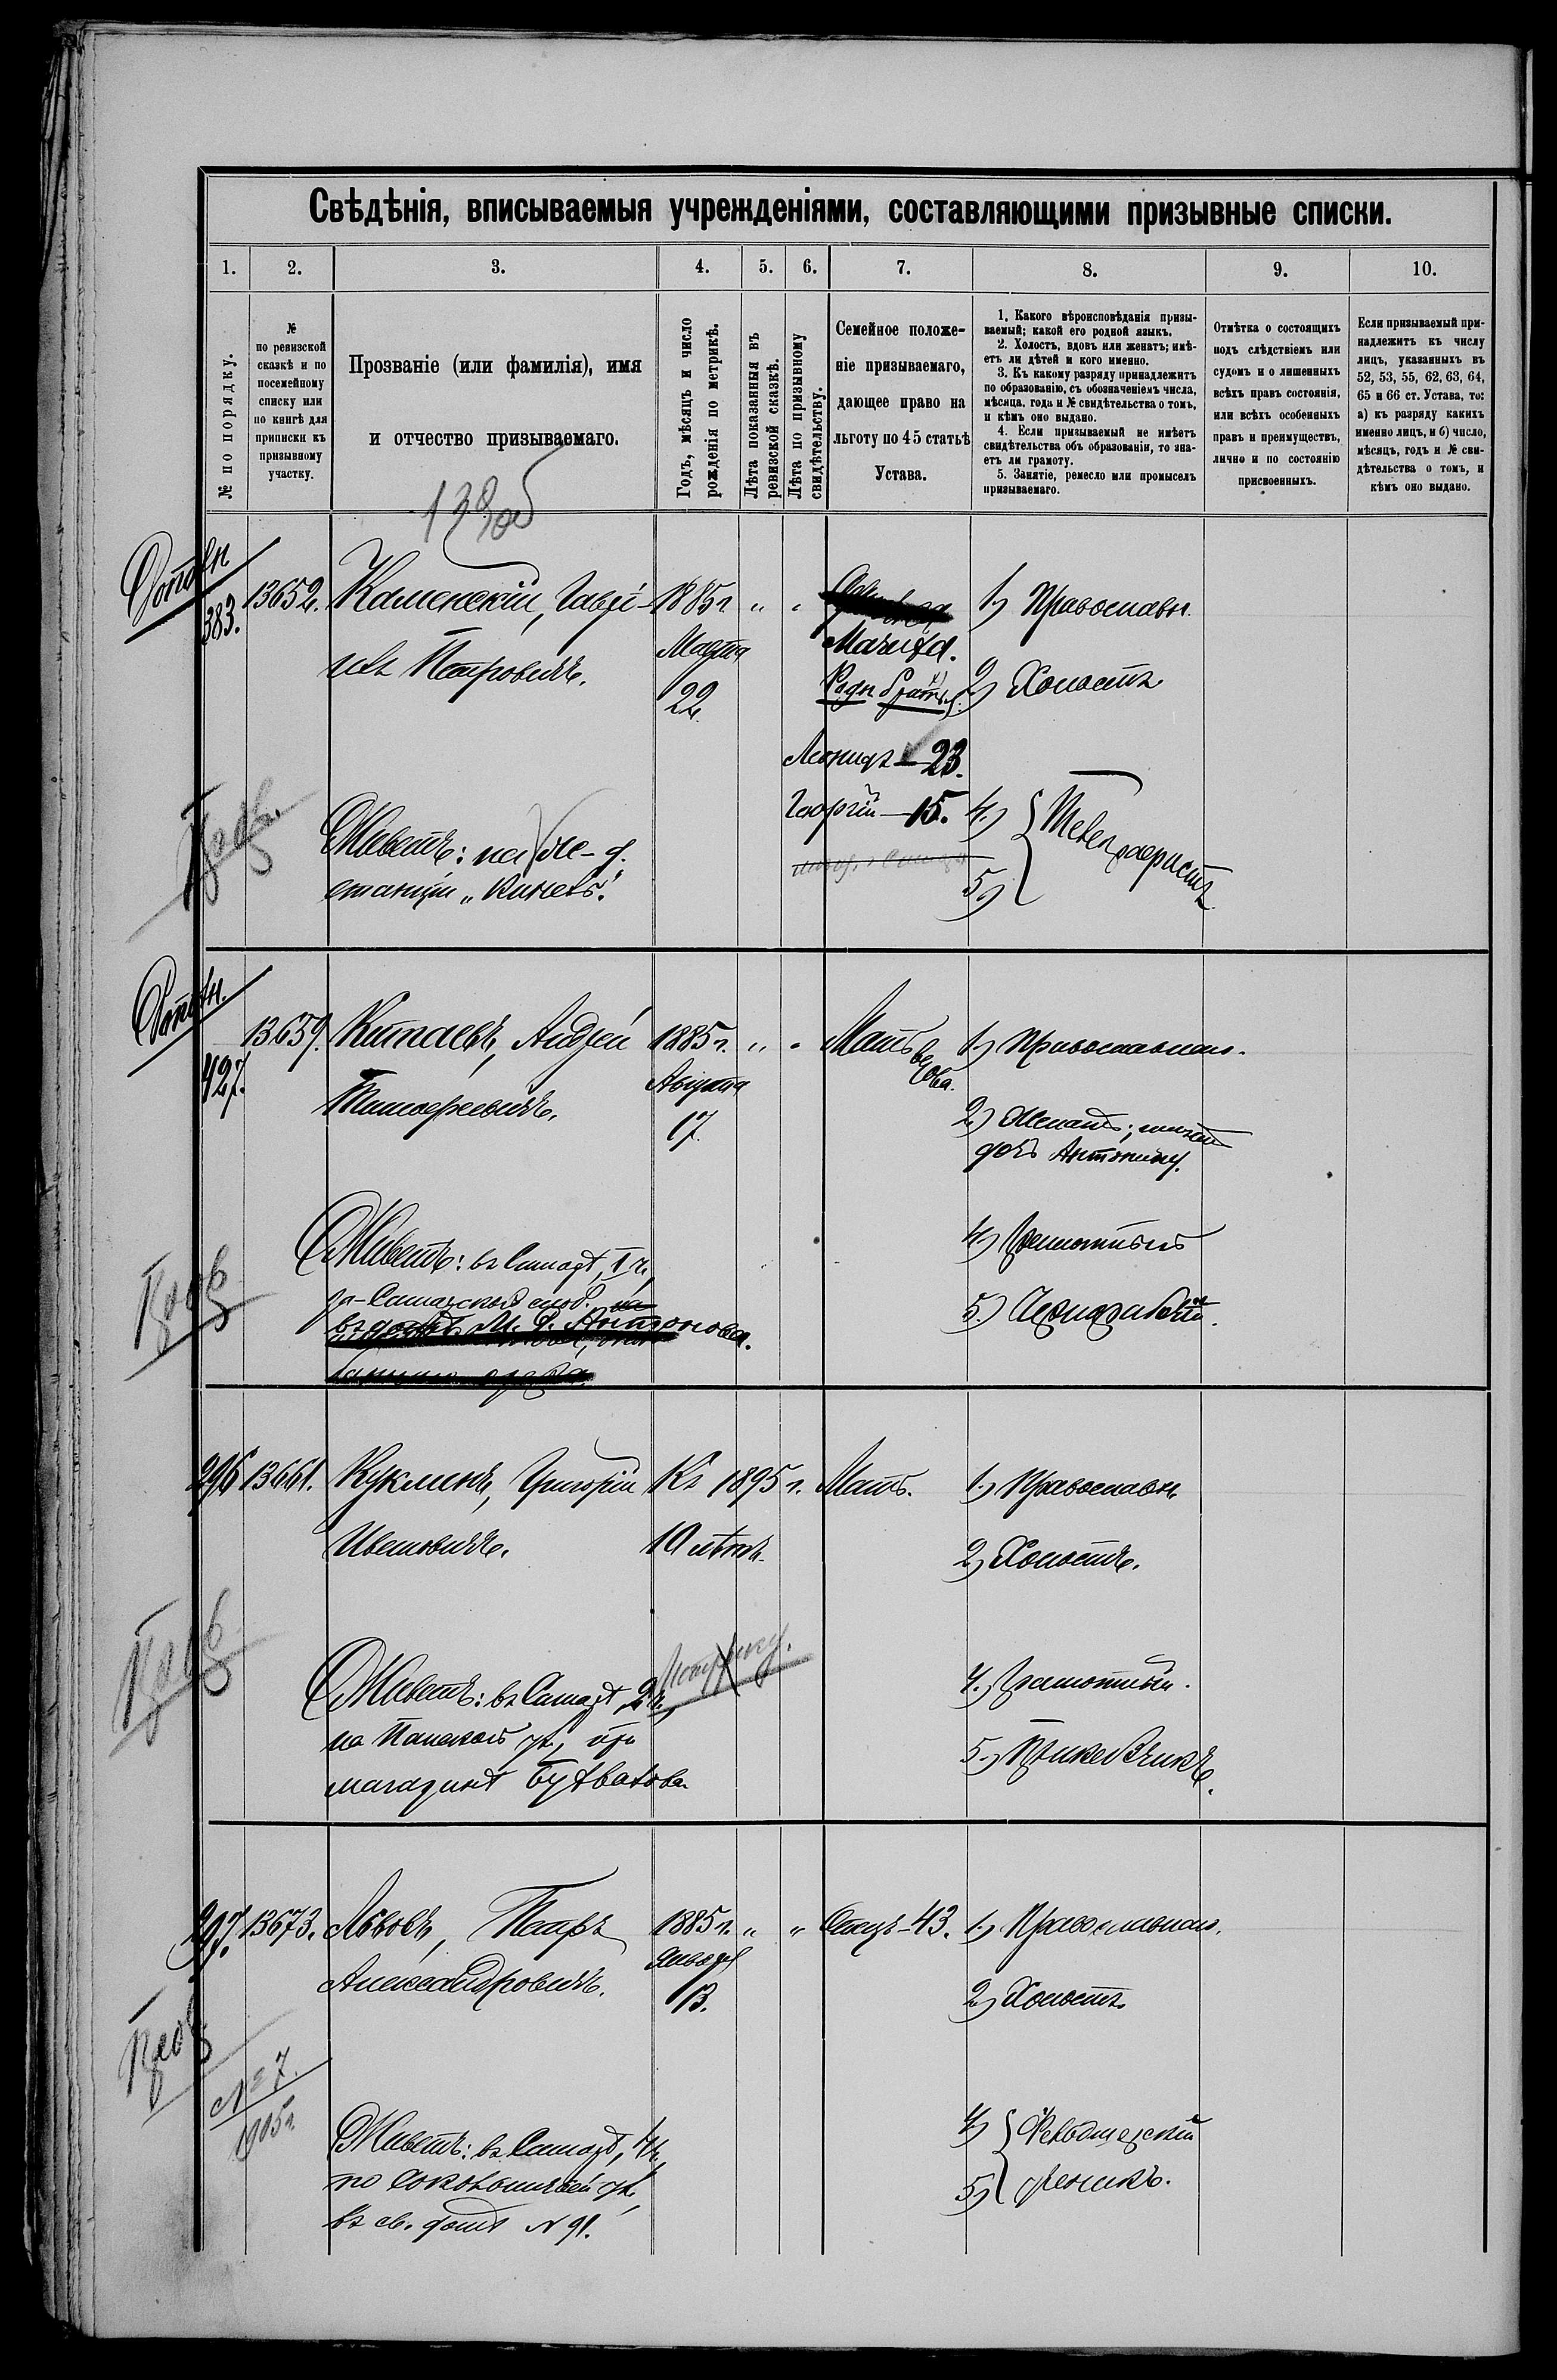 Свѣдѣнія, вписываемыя учрежденіями, составляющими призывные списки.
1. 2. 3. 4. 5. 6. 7. 8. 9. 10.
№ по порядку.
№
по ревизской
сказкѣ и по
посемейному
списку или
по книгѣ для
приписки къ
призывному
участку.
Прозваніе (или фамилія), имя
и отчество призываемаго.
Годъ, мѣсяцъ и число
рожденія по метрикѣ.
Лѣта показанныя въ
ревизской сказкѣ.
Лѣта по призывному
свидѣтельству.
Семейное положе-
ніе призываемаго,
дающее право на
льготу по 45 статьѣ
Устава.
1. Какого вѣроисповѣданія призы-
ваемый; какой его родной языкъ.
2. Холостъ, вдовъ или женатъ; имѣ-
етъ ли дѣтей и кого именно.
3. Къ какому разряду принадлежитъ
по образованію, съ обозначеніемъ числа,
мѣсяца, года и № свидѣтельства о томъ,
и кѣмъ оно выдано.
4. Если призываемый не имѣетъ
свидѣтельства объ образованіи, то зна-
етъ ли грамоту.
5. Занятіе, ремесло или промыселъ
призываемаго.
Отмѣтка о состоящихъ
подъ слѣдствіемъ или
судомъ и о лишенныхъ
всѣхъ правъ состоянія,
или всѣхъ особенныхъ
правъ и преимуществъ,
лично и по состоянію
присвоенныхъ.
Если призываемый при-
надлежитъ къ числу
лицъ, указанныхъ въ
52, 53, 55, 62, 63, 64,
65 и 66 ст. Устава, то:
а) къ разряду какихъ
именно лицъ, и б) число,
мѣсяцъ, годъ и № сви-
дѣтельства о томъ, и
кѣмъ оно выдано.
383. 13652. Каменскій, Гаврі- 1885 г. " " 1) Православн.
илъ Петровичъ. Марта Мачиха.
22 Родн. братья: 2) Холостъ
Леонидъ — 23.
Георгій — 15. 4)
Живетъ: на же-д. Телеграфистъ
станціи „Кинель". 5)
427. 13659. Китаевъ, Андрей 1885 г. " " Мать вдова. 1) Православный.
Тимофеевичъ. Августа
17. 2) Женатъ; имѣетъ
дочь Антонину.
Живетъ: въ Самарѣ, 1 ч., 4) Грамотный
за-Самарской слоб.
въ домѣ М. Ф. Антонова. 5.) Чернорабочій.
296 13661. Куклинъ, Григорій Къ 1895 г. Мать. 1) Православн
Ивановичъ. 10 лѣтъ. 2) Холостъ.
Живетъ: въ Самарѣ 2 ч., 4. Грамотный.
на Панской ул., при
магазинѣ 5.) Прикащикъ.
297. 13673. Львовъ, Петръ 1885 г. " " Отецъ - 43. 1) Православный.
Александровичъ. Января
13. 2) Холостъ.
№ 7.
1905 г.
Живетъ: въ Самарѣ, 4 ч., 4) Фельдшерскій
по Сокольничьей ул.
въ св. домѣ № 91. 5) ученикъ.